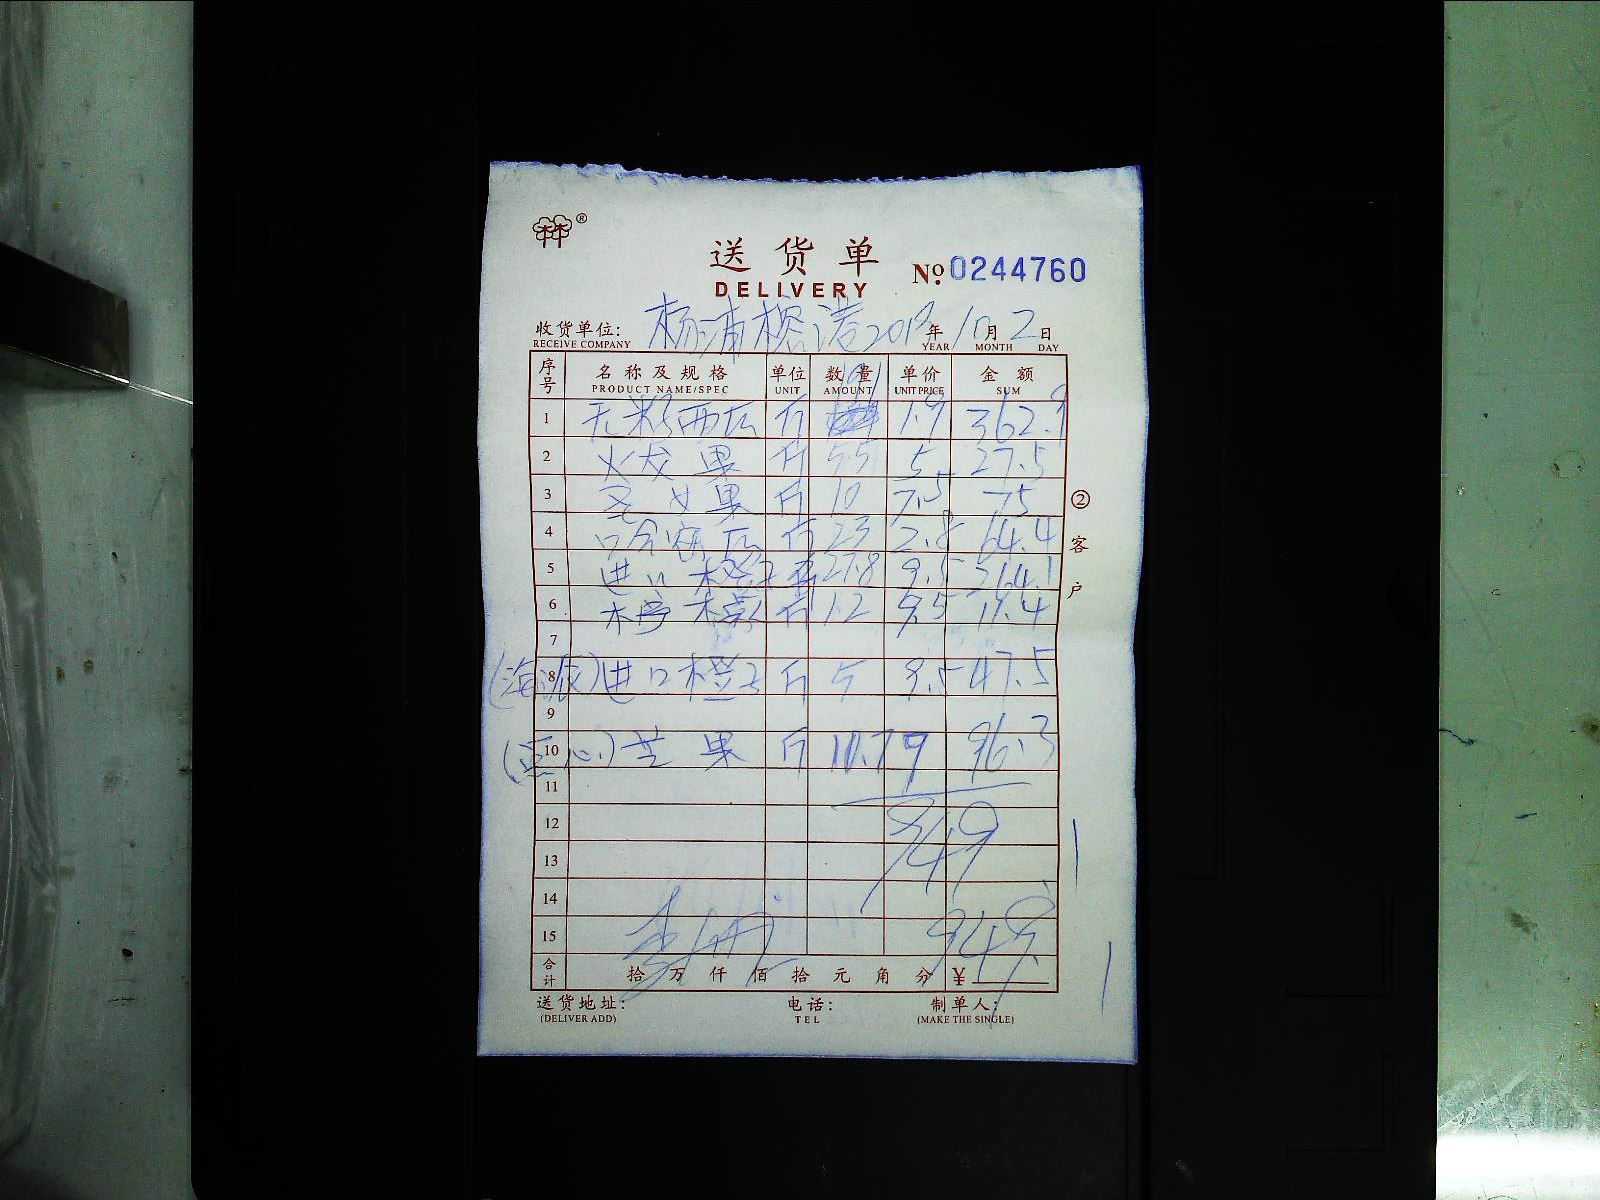 ®
送货单
No.0244760
DELIVERY
收货单位: 杨浦榕港 2019年10月2日
RECEIVE COMPANY YEAR MONTH DAY
序号 名称及规格 单位 数量 单价 金额
PRODUCT NAME/SPEC UNIT AMOUNT UNIT PRICE SUM
1 无籽西瓜 斤 191 1.9 362.9
2 火龙果 斤 5.5 5 27.5
3 圣女果 斤 10 7.5 75
4 哈密瓜 斤 23 2.8 64.4
5 进口橙子 斤 27.8 9.5 264.1
6 柠檬 斤 1.2 9.5 11.4
7
8 (海派)进口橙子 斤 5 9.5 47.5
9
10 (点心)芒果 斤 10.7 9 96.3
11
12 949
13
14
15 949
合计 拾 万 仟 佰 拾 元 角 分 ¥
送货地址: 电话: 制单人:
(DELIVER ADD) TEL (MAKE THE SINGLE)
②客户